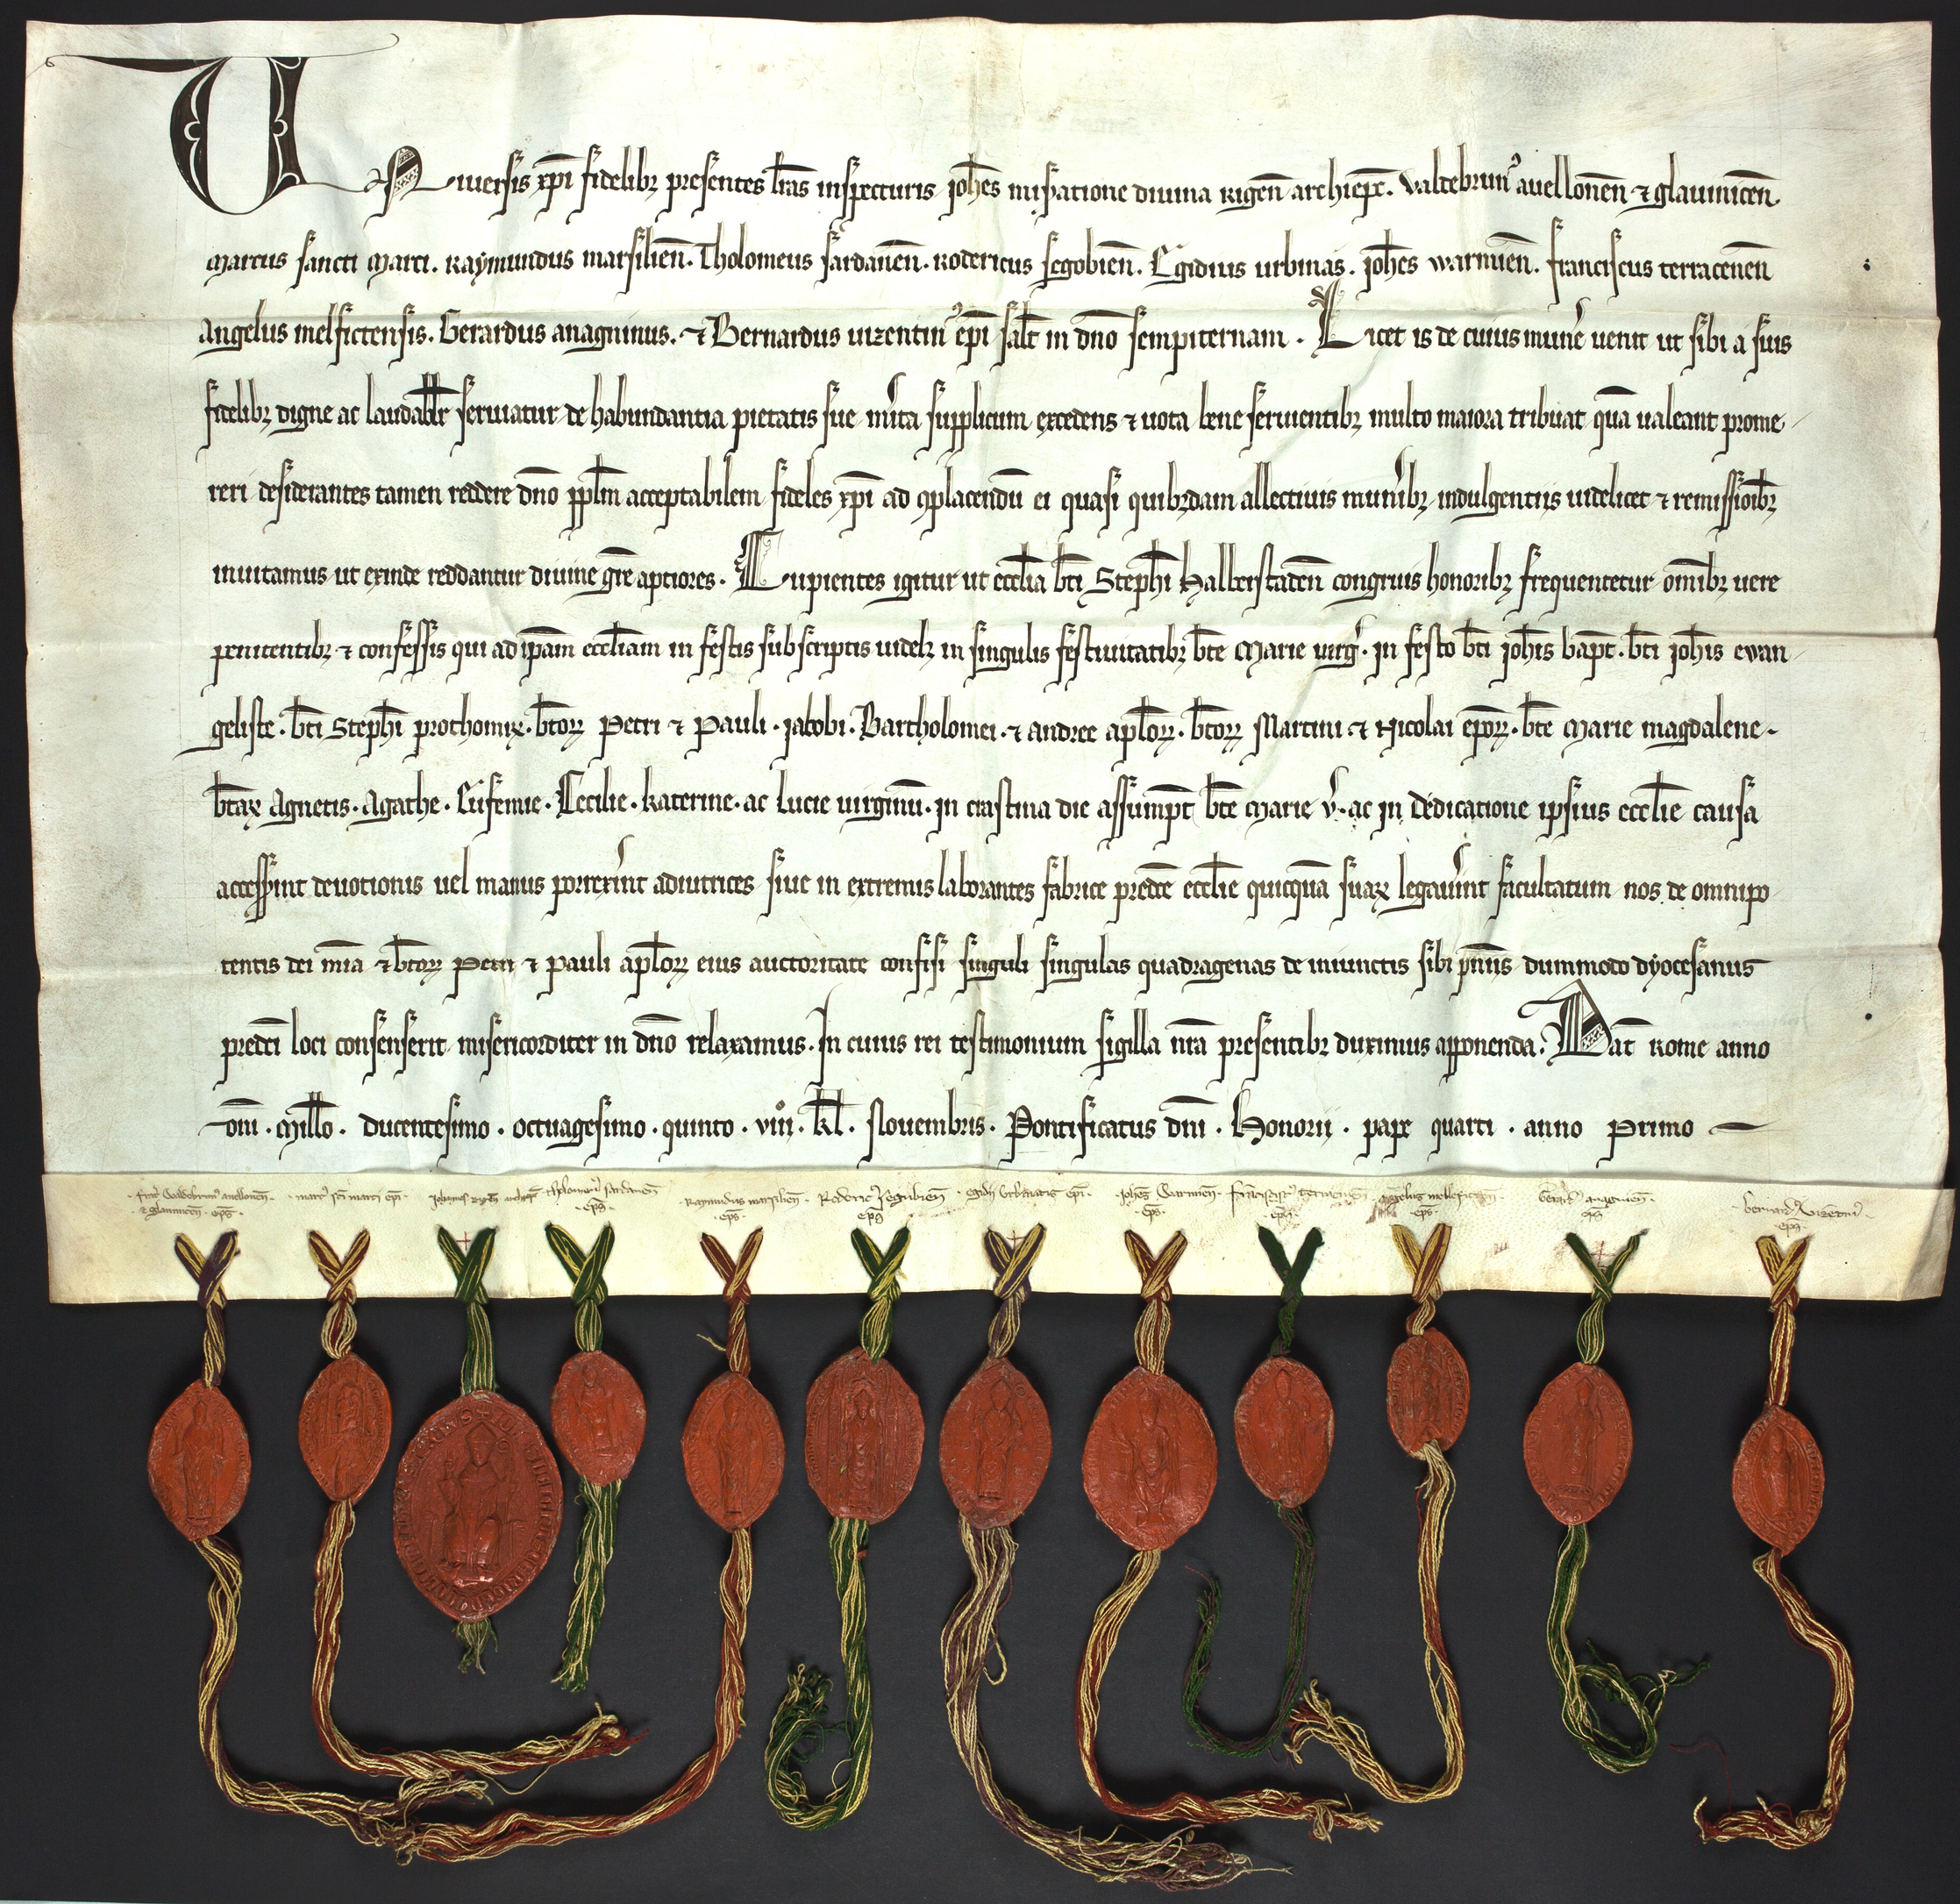 Uniuersis xp̄i fidelibꝫ presentes lr̄as inspecturis joh̄es miseratione diuina rigen̄ archiep̄c. valdebrunꝰ auellonen̄ ⁊ glauinicen̄.
Marcus sancti Marci. Raymundus marsilien̄. Tholomeus sardanen̄. Rodericus segobien̄. Egidius urbinas. joh̄es warmien̄. franciscus terracenen̄
Angelus melfictensis. Gerardus anagninus. ⁊ Bernardus uizentinꝰ ep̄i salt̄ in dn̄o sempiternam. Licet is de cuius mun̄e uenit ut sibi a suis
fidelibꝫ digne ac laudabl̄r seruiatur de habundantia pietatis sue mīta supplicum excedens ⁊ uota bene seruientibꝫ multo maiora tribuat quā ualeant prome
reri desiderantes tamen reddere dn̄o ppl̄m acceptabilem fideles xp̄i ad ꝯplacendū ei quasi quibꝫdam allectiuis munībꝫ indulgentijs uidelicet ⁊ remissioībꝫ
inuitamus ut exinde reddantur diuine gr̄e aptiores. Cupientes igitur ut eccl̄ia bt̄i Steph̄i Halberstaden̄ congruis honoribꝫ frequentetur om̄ibꝫ uere
penitentibꝫ ⁊ confessis qui ad ip̄am eccl̄iam in festis subscriptis uidelꝫ in singulis festiuitatibꝫ bt̄e Marie uirḡ. in festo bt̄i joh̄is bapt̄. bt̄i joh̄is ewan
geliste. bt̄i Steph̄i prothomꝝ. bt̄oꝝ Petri ⁊ Pauli. jacobi. Bartholomei. ⁊ andree apl̄oꝝ. bt̄oꝝ Martini ⁊ Nicolai ep̄oꝝ. bt̄e Marie magdalene.
bt̄aꝝ Agnetis. Agathe. Eufemie. Cecilie. katerine. ac lucie uirginū. in crastina die assumpt̄ bt̄e Marie v̄. ac in dedicatione ipsius eccl̄ie causa
accesserint deuotionis uel manus porrexīnt adiutrices siue in extremis laborantes fabrice predc̄e eccl̄ie quicquā suaꝝ legauīnt facultatum nos de omnipo
tentis dei mīa ⁊ bt̄oꝝ Petri ⁊ Pauli apl̄oꝝ eius auctoritate confisi singuli singulas quadragenas de iniunctis sibi pn̄īis dummodo dyocesanus
predc̄i loci consenserit misericorditer in dn̄o relaxamus. In cuius rei testimonium sigilla nr̄a presentibꝫ duximus apponenda. Dat̄ Rome anno
dn̄i. Mill̄o. ducentesimo. octuagesimo. quinto. viiiͦ. kl̄. Nouembris. Pontificatus dn̄i. Honorij. pape quarti. anno Primo
frat̄ Valdebrunꝰ auellonen̄. ⁊ glauinicen̄. ep̄s.
marcꝰ sc̄i marci ep̄i.
Johannes rigen̄ archiep̄
tholomeꝰ sardanen̄ ep̄s
Raymundus marsilien̄. ep̄s.
Rodericꝰ segubien̄ ep̄s
egidij Urbinatis ep̄i.
joh̄es Warmien̄. ep̄s.
franciscꝰ terracenen̄ ep̄s
angelus melfictan̄. ep̄s.
Gerardꝰ anagnien̄. ep̄s
bernardꝰ Vizētinꝰ. ep̄s